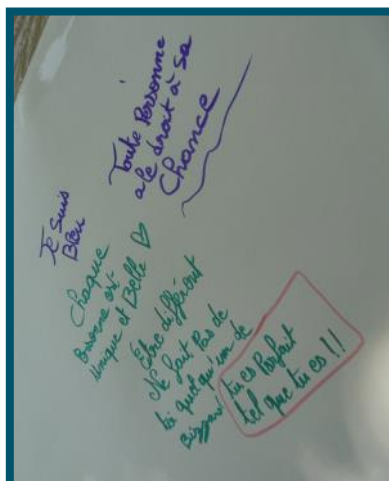 Toute Personne
a le droit à sa
Chance
Je suis
Bleu
Chaque
personne est
unique et Belle
Être différent
Ne fait Pas de
toi quelqu'un de
Bizarre
tu es Parfait
tel que tu es !!